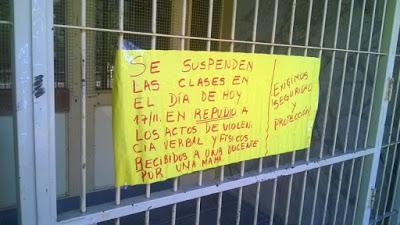 SE SUSPENDEN
LAS CLASES EN
EL DÍA DE HOY
17/11. EN REPUDIO A
LOS ACTOS DE VIOLEN.
CIA VERBAL Y FÍSICOS
RECIBIDOS A UNA DOCENTE
POR UNA MAMÁ
EXIGIMOS
SEGURIDAD
Y
PROTECCIÓN